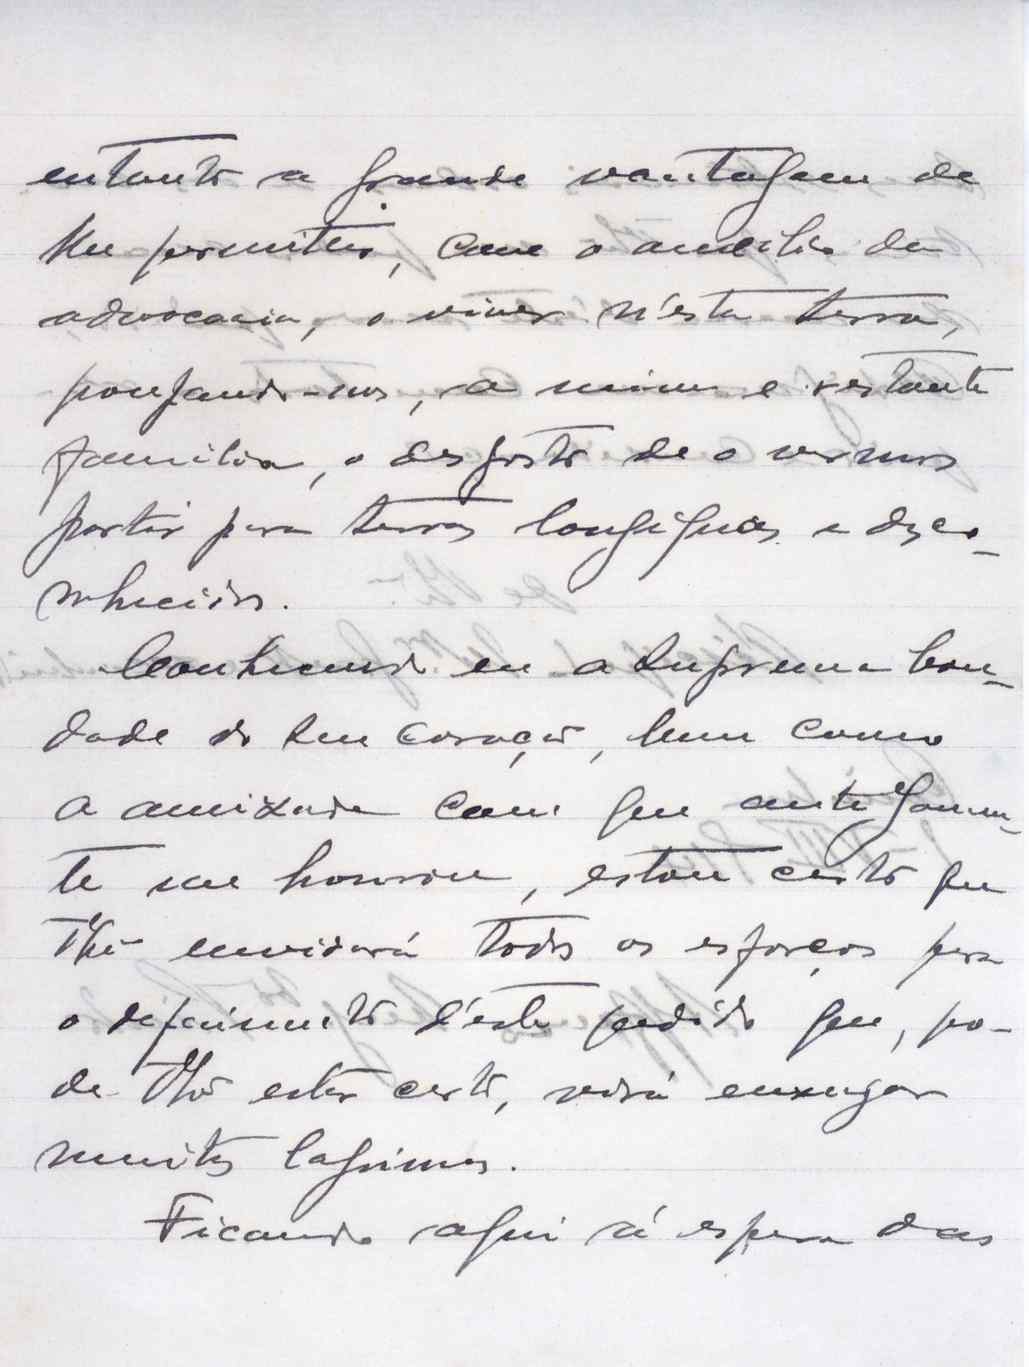 entanto a grande vantagem de
lhe permittir, com o auxilio da
advocacia, o viver n'esta terra,
poupando-nos, a mim e restante
familia, o desgosto de o vermos
partir para terras longiquas e desco-
nhecidas.
Conhecendo eu a suprema bon-
dade do seu coração, bem como
a amizade com que antigamen-
te me honrou, estou certo que
envidará todos os esforços para
o deferimento d'este pedido que, po-
de estar certo, virá enxugar
muitas lagrimas.
Ficando aqui á espera das